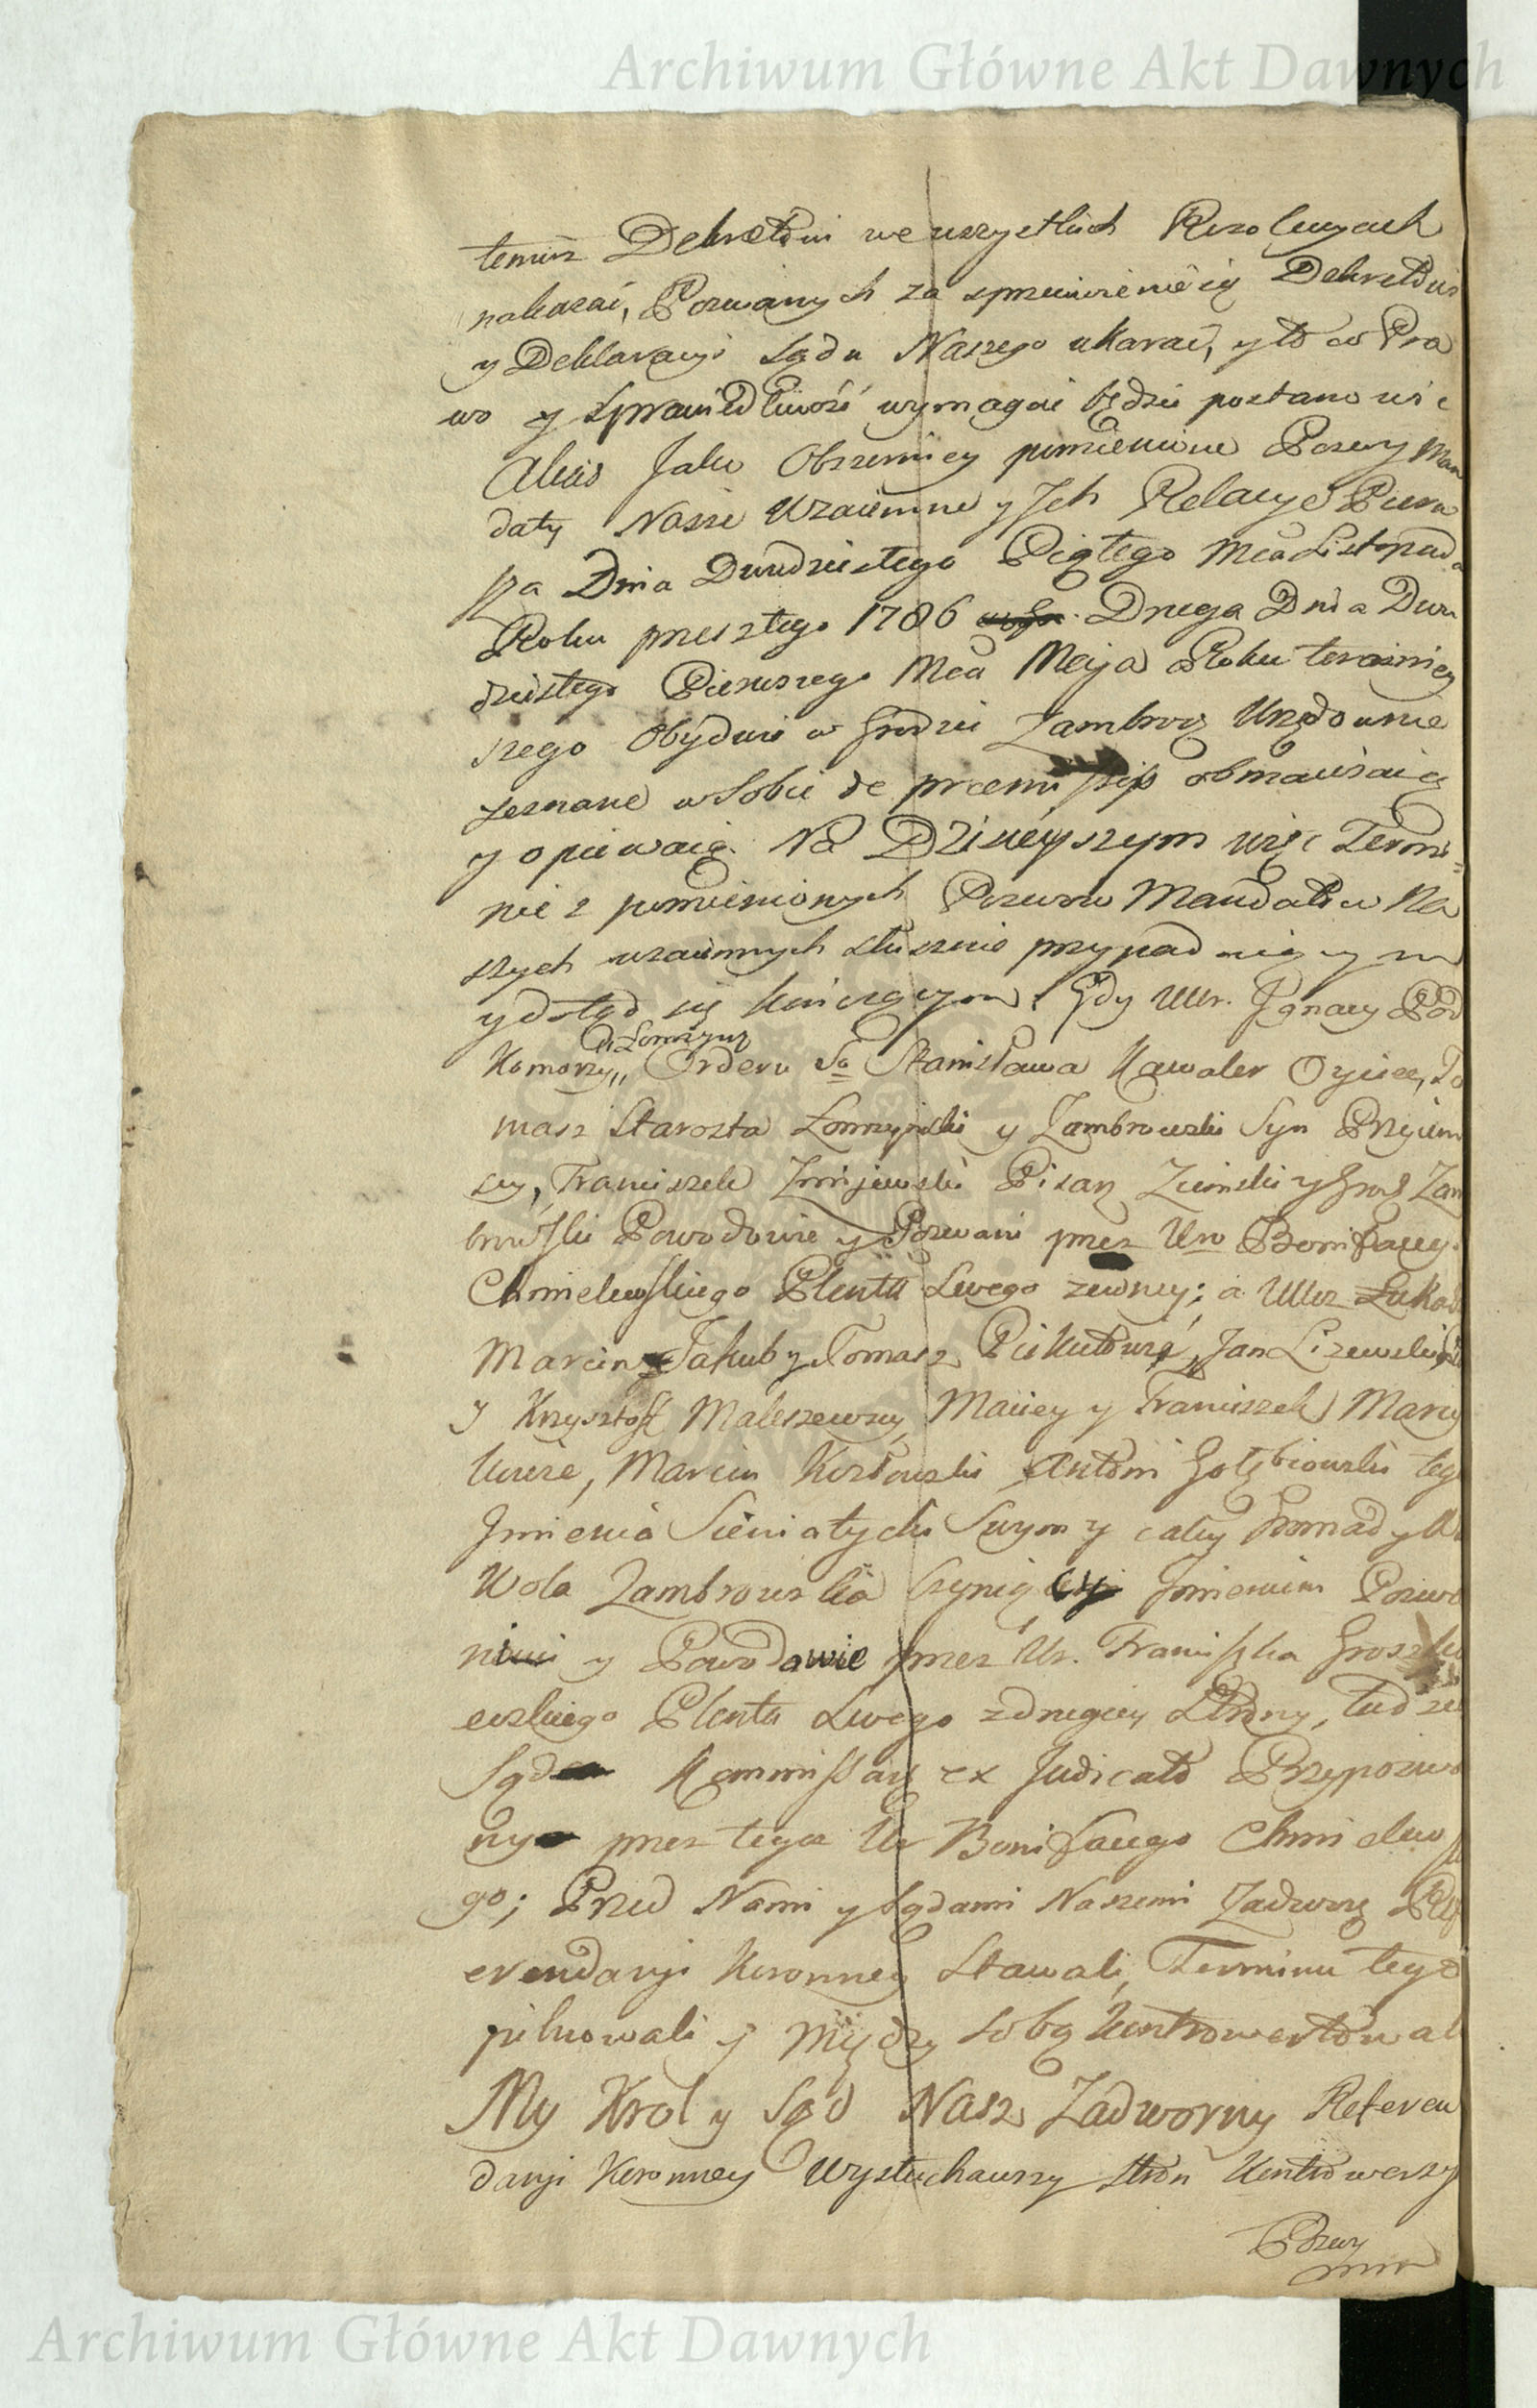 Archiwum Główne Akt Dawnych
temuż Dekretowi we wszystkich Rezolucyach
nakazać, Pozwanych za sprzeciwienie się Dekretowi
y Deklaracyi Sądu Naszego ukarać, y to co Pra
wo y Sprawiedliwość wymagać będzie postanowić
Aliàs Jako Obszerniey pomienione Pozwy Man
daty Nasze Wzaiemne y Jch Relacye Pierw
sza Dnia Dwudziestego Piątego Mca Listopada
Roku przeszłego 1786 Druga Dnia Dwu
dziestego Pierwszego Mca Maja Roku teraźniey
szego Obydwie w Grodzie Zambrow Urzędownie
zeznane w Sobie de praemissis obmawiaią
y opiewaią. Na Dzisieyszym więc Termi=
nie z pomienionych Pozwow Mandatow Na
szych wzaiemnych słusznie przypadaiącym
y dotąd się kończącym. Gdy Ur. Jgnacy Pod
Łomżyns
Komorzy,, Orderu So Stanisława Kawaler Oyciec, To
masz Starosta Łomzynski y Zambrowski Syn Przyiem
scy, Franciszek Zmijewski Pisarz Ziemski y Grod Zam
browski Powodowie y Pozwani przez Uro Bonifacego
Chmielewskiego Plenta Swego zedney; a Ucz Łukasz
Marcin Jakub y Tomasz Piskutowie, Jan Lizewski
y Krzysztof Maleszewscy, Maciey y Franciszek Marcy
kwie, Marcin Kozłowski Antoni Gołębiowski tego
Jmienia Sieniatycki Swym y całey Gromady Wsi
Wola Zambrowska czyniący Jmieniem Pozwa
ni y Powodowie przez Ur. Franciszka Groszko
ewskiego Plenta Swego zdrugiey Strony, tudzież
Sąd Kommissary ex Judicato Przypozwa
ny przez tegoż Ur Bonifacego Chmielews
go; Przed Nami y Sądami Naszemi Zadwor Ref
erendaryi Koronney Stawali, Terminu tego
pilnowali y między sobą kontrowertowali
My Krol y Sąd Nasz Zadworny Referen
daryi Koronney Wysłuchawszy stron kontrowersyi
Pozwy
Archiwum Główne Akt Dawnych